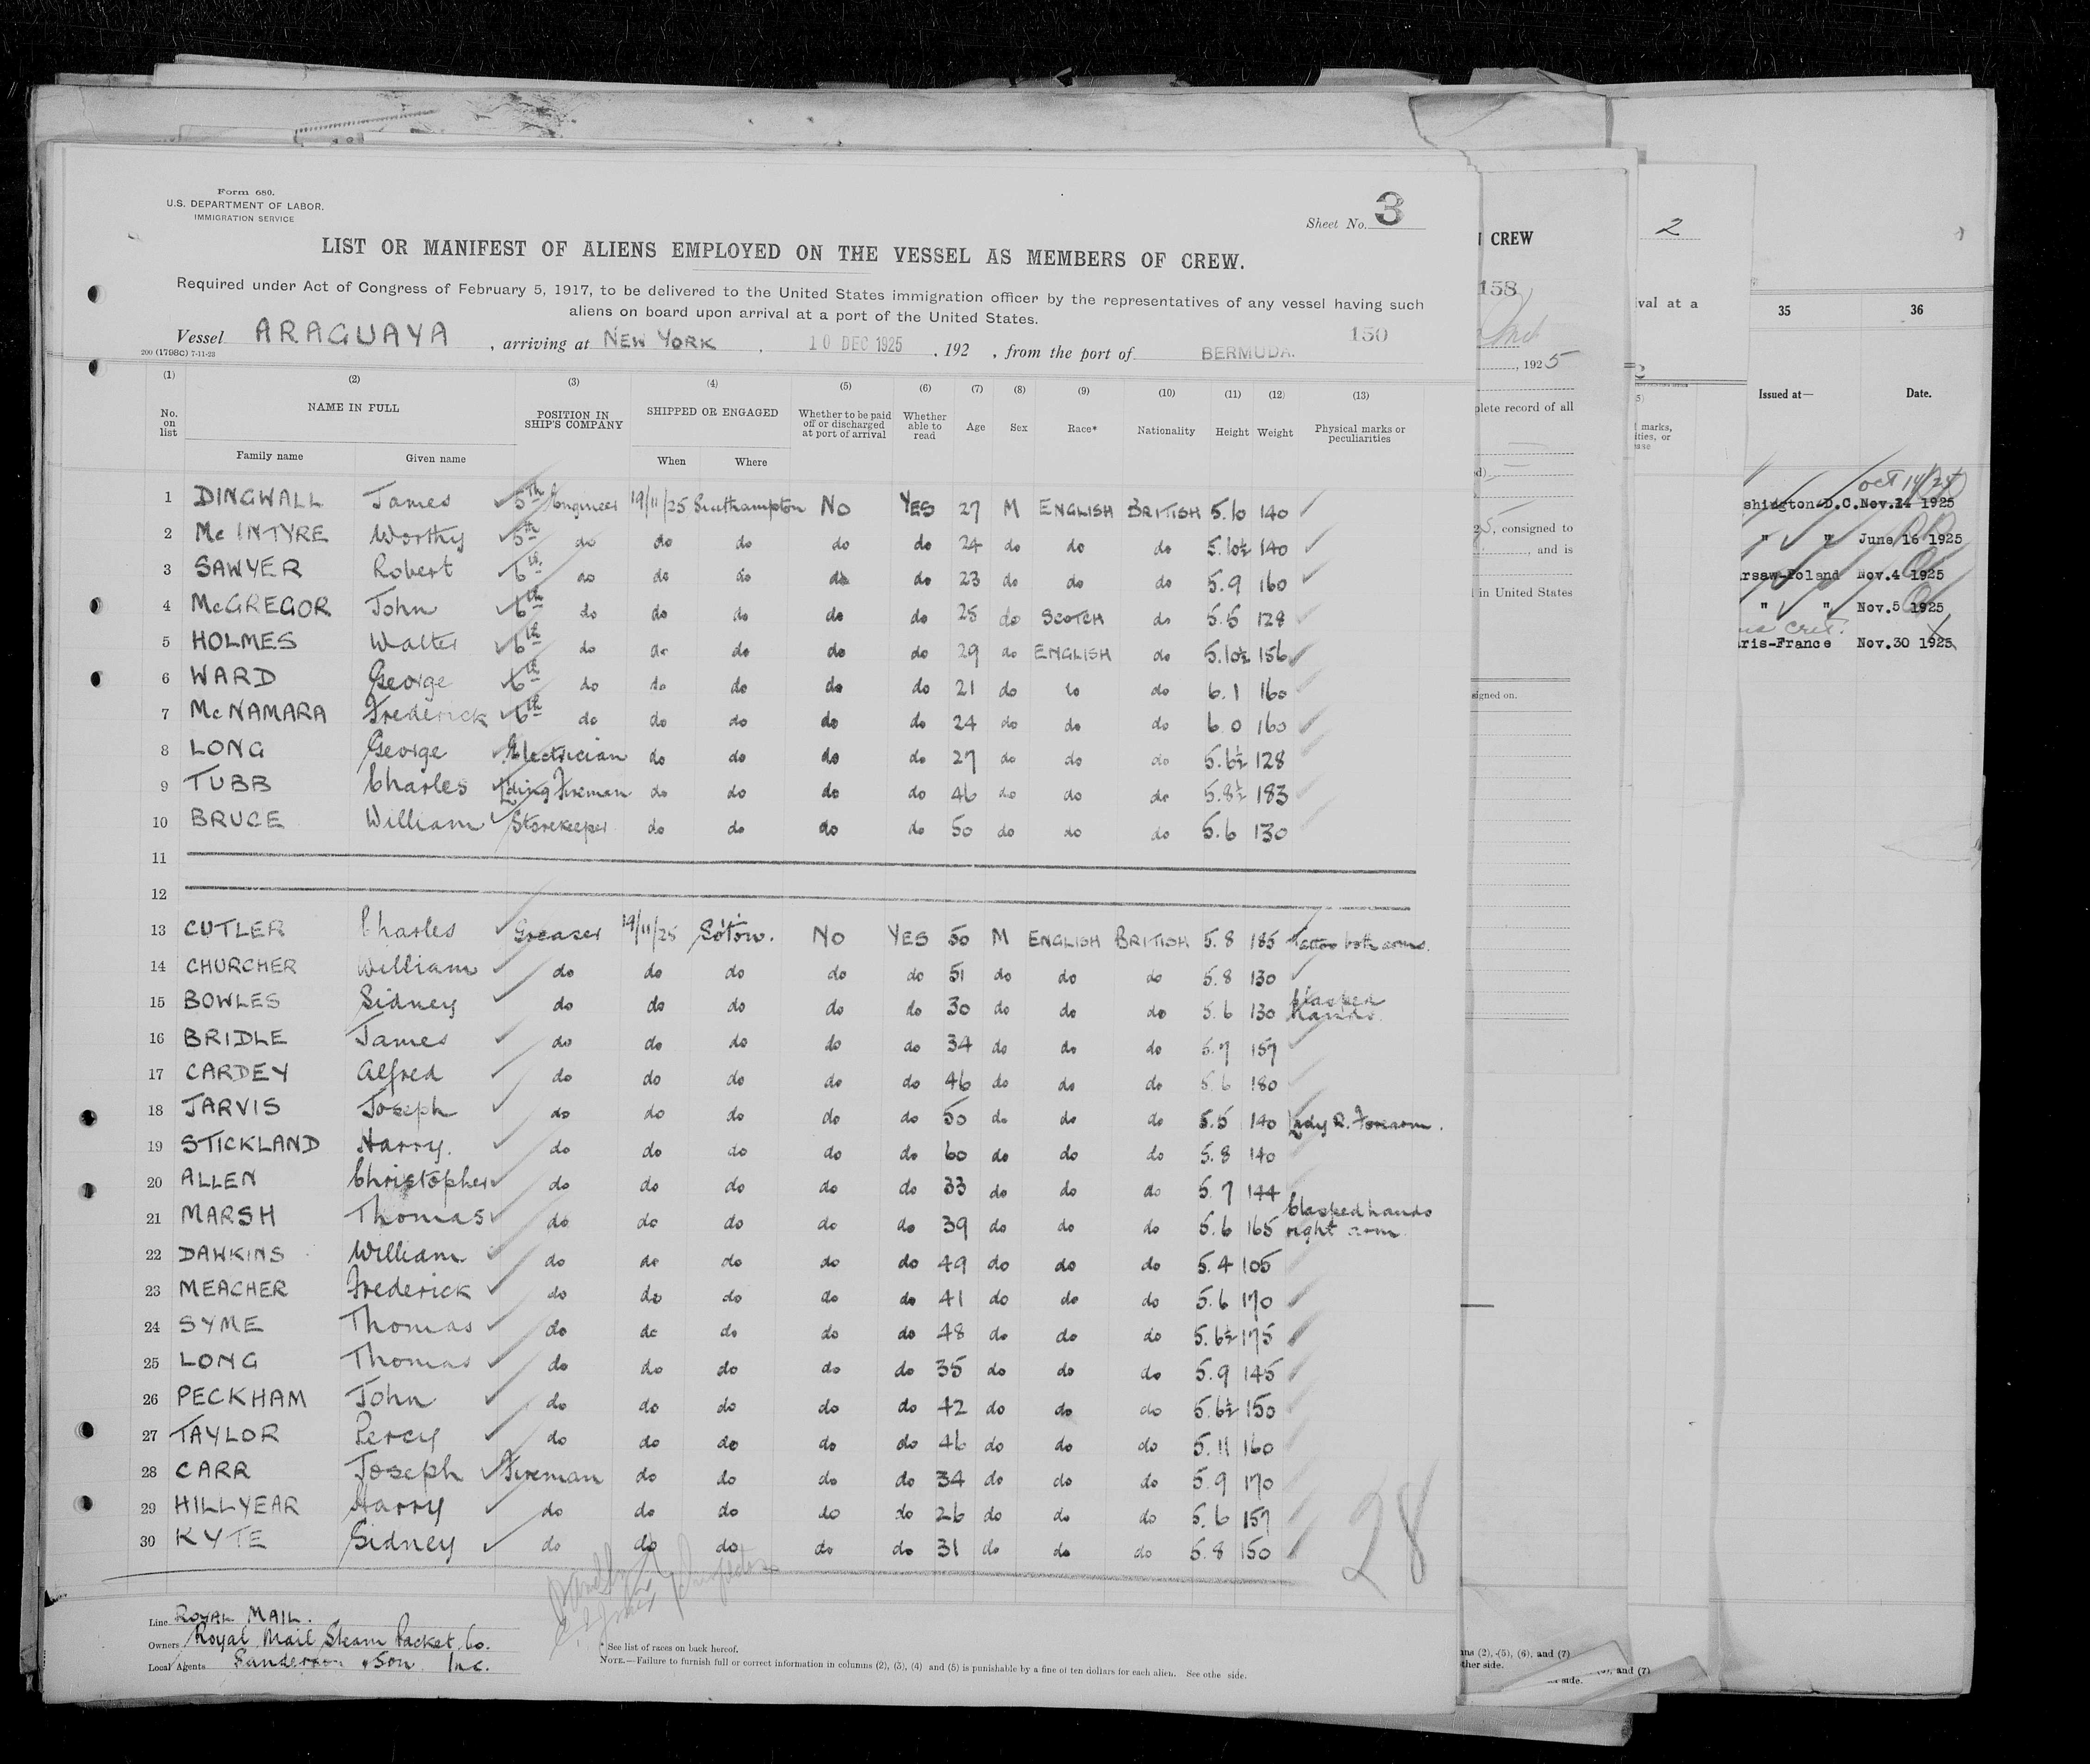 Form 680.
U.S. DEPARTMENT OF LABOR.
IMMIGRATION SERVICE
Sheet No. 3
LIST OR MANIFEST OF ALIENS EMPLOYED ON THE VESSEL AS MEMBERS OF CREW.
Required under Act of Congress of February 5, 1917, to be delivered to the United States immigration officer by the representatives of any vessel having such
aliens on board upon arrival at a port of the United States.
150
Vessel ARAGUAYA, arriving at NEW YORK, 10 DEC 1925, 192 , from the port of BERMUDA.
200 (1798C) 7-11-23
(1) (2) (3) (4) (5) (6) (7) (8) (9) (10) (11) (12) (13)
No. on list NAME IN FULL POSITION IN SHIP'S COMPANY SHIPPED OR ENGAGED Whether to be paid off or discharged at port of arrival Whether able to read Age Sex Race* Nationality Height Weight Physical marks or peculiarities
Family name Given name When Where
1 DINGWALL James 5th Engineer 19/11/25 Southampton No YES 27 M ENGLISH BRITISH 5.10 140
2 McINTYRE Worthy 5th do do do do do 24 do do do 5.10½ 140
3 SAWYER Robert 6th do do do do do 23 do do do 5.9 160
4 McGREGOR John 6th do do do do do 25 do SCOTCH do 5.5 128
5 HOLMES Walter 6th do do do do do 29 do ENGLISH do 5.10½ 156
6 WARD George 6th do do do do do 21 do do do 6.1 160
7 McNAMARA Frederick 6th do do do do do 24 do do do 6 0 160
8 LONG George Electrician do do do do 27 do do do 5.6½ 128
9 TUBB Charles Lding Fireman do do do do 46 do do do 5.8½ 183
10 BRUCE William Storekeeper do do do do 50 do do do 5.6 130
11
12
13 CUTLER Charles Greaser 19/11/25 So'ton. No YES 50 M ENGLISH BRITISH 5.8 185 Tattoo both arms.
14 CHURCHER William do do do do do 51 do do do 5.8 130
15 BOWLES Sidney do do do do do 30 do do do 5.6 130 Clasped hands.
16 BRIDLE James do do do do do 34 do do do 5.7 157
17 CARDEY Alfred do do do do do 46 do do do 5.6 180
18 JARVIS Joseph do do do do do 50 do do do 5.5 140 Lady R. Forearm.
19 STICKLAND Harry. do do do do do 60 do do do 5.8 140
20 ALLEN Christopher do do do do do 33 do do do 5.7 144
21 MARSH Thomas do do do do do 39 do do do 5.6 165 Clasped hands right arm
22 DAWKINS William do do do do do 49 do do do 5.4 105
23 MEACHER Frederick do do do do do 41 do do do 5.6 170
24 SYME Thomas do do do do do 48 do do do 5.6½ 175
25 LONG Thomas do do do do do 35 do do do 5.9 145
26 PECKHAM John do do do do do 42 do do do 5.6½ 150
27 TAYLOR Percy do do do do do 46 do do do 5.11 160
28 CARR Joseph Fireman do do do do 34 do do do 5.9 170
29 HILLYEAR Harry do do do do do 26 do do do 5.6 157
30 KYTE Sidney do do do do do 31 do do do 5.8 150
28
Line ROYAL MAIL.
Owners Royal Mail Steam Packet Co.
Local Agents Sanderson & Son Inc.
* See list of races on back hereof.
NOTE.—Failure to furnish full or correct information in columns (2), (3), (4) and (5) is punishable by a fine of ten dollars for each alien. See othe side.
CREW
158
, 1925
plete record of all
5, consigned to
, and is
in United States
signed on.
(2), (5), (6), and (7)
ther side.
2
val at a
marks,
ities, or
and (7)
side.
35 36
Issued at— Date.
Oct 14/24
shington-D.C. Nov.24 1925
" " June 16 1925
rsaw-Poland Nov.4 1925
" " Nov.5 1925
ris-France Nov.30 1925